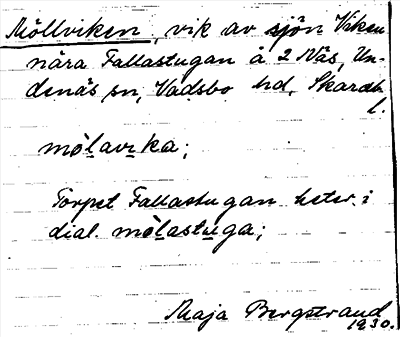 Möllviken, vik av sjön Viken
nära Fallastugan å 2 Näs, Un-
denäs sn, Vadsbo hd, Skarab.
l.
mòlavika;
Torpet Fallastugan heter i
dial. mòlastuga;
Maja Bergstrand
1930.